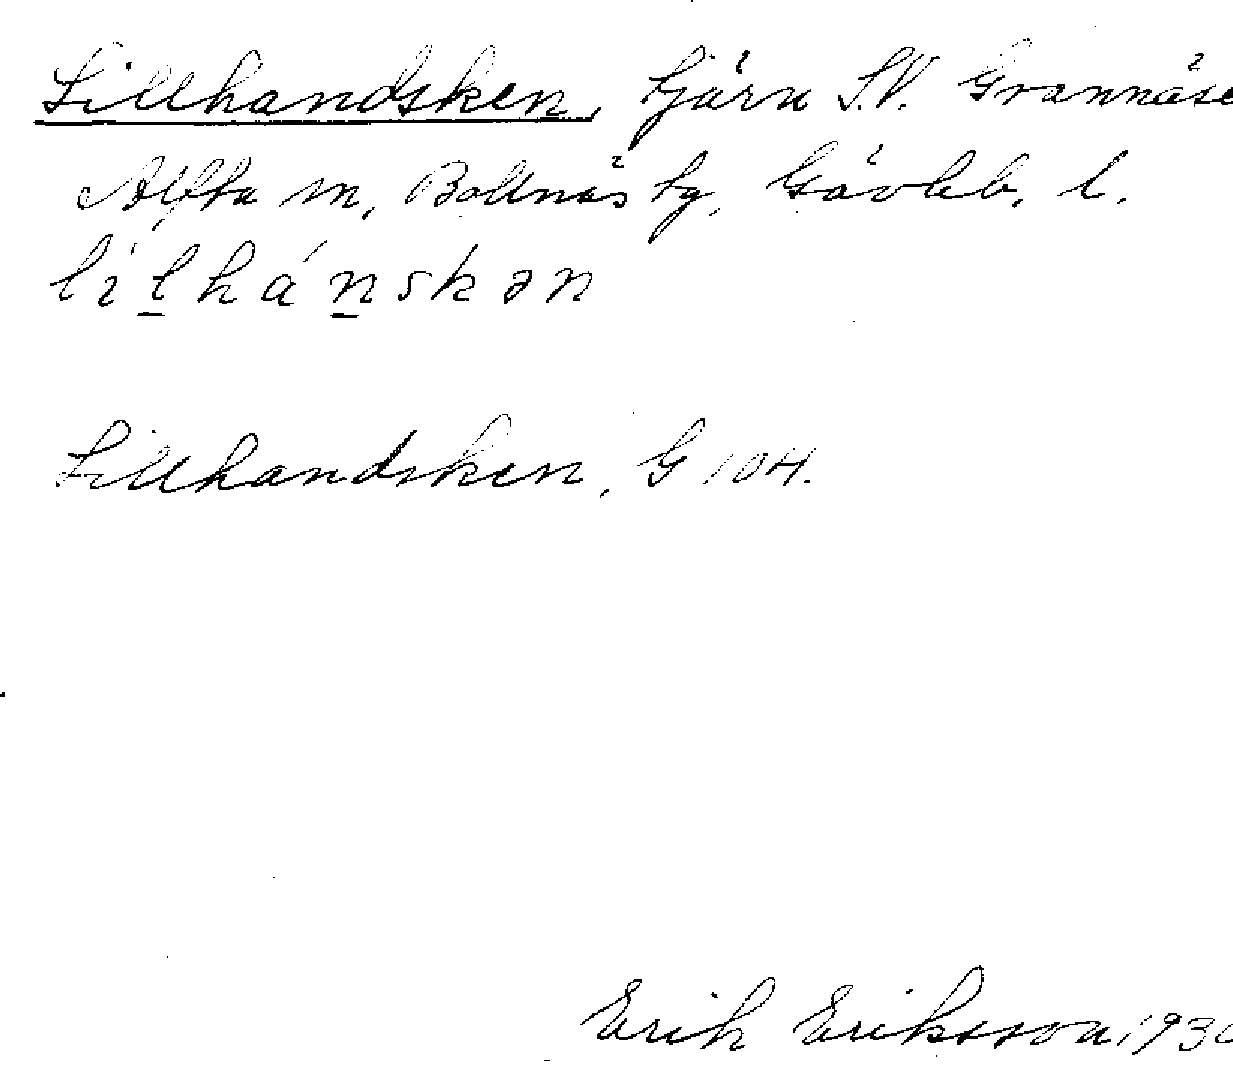 Lillhandsken, tjärn S.V. Grannäse
Alfta sn, Bollnäs tg, Gävleb. l.
lilhánskən
Lillhandsken, G 104.
Erik Eriksson 193